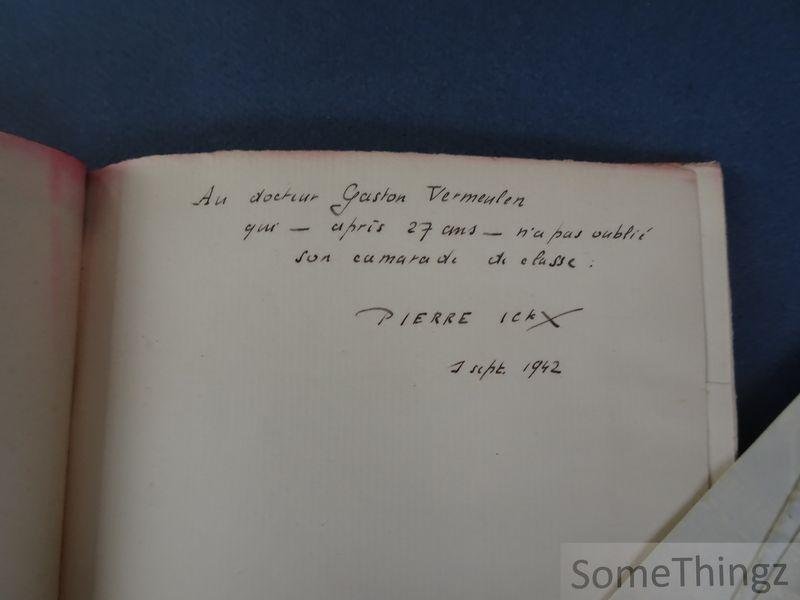 Au docteur Gaston Vermeulen
qui — après 27 ans — n'a pas oublié
son camarade de classe :
PIERRE ICKX
1 sept. 1942
SomeThingz